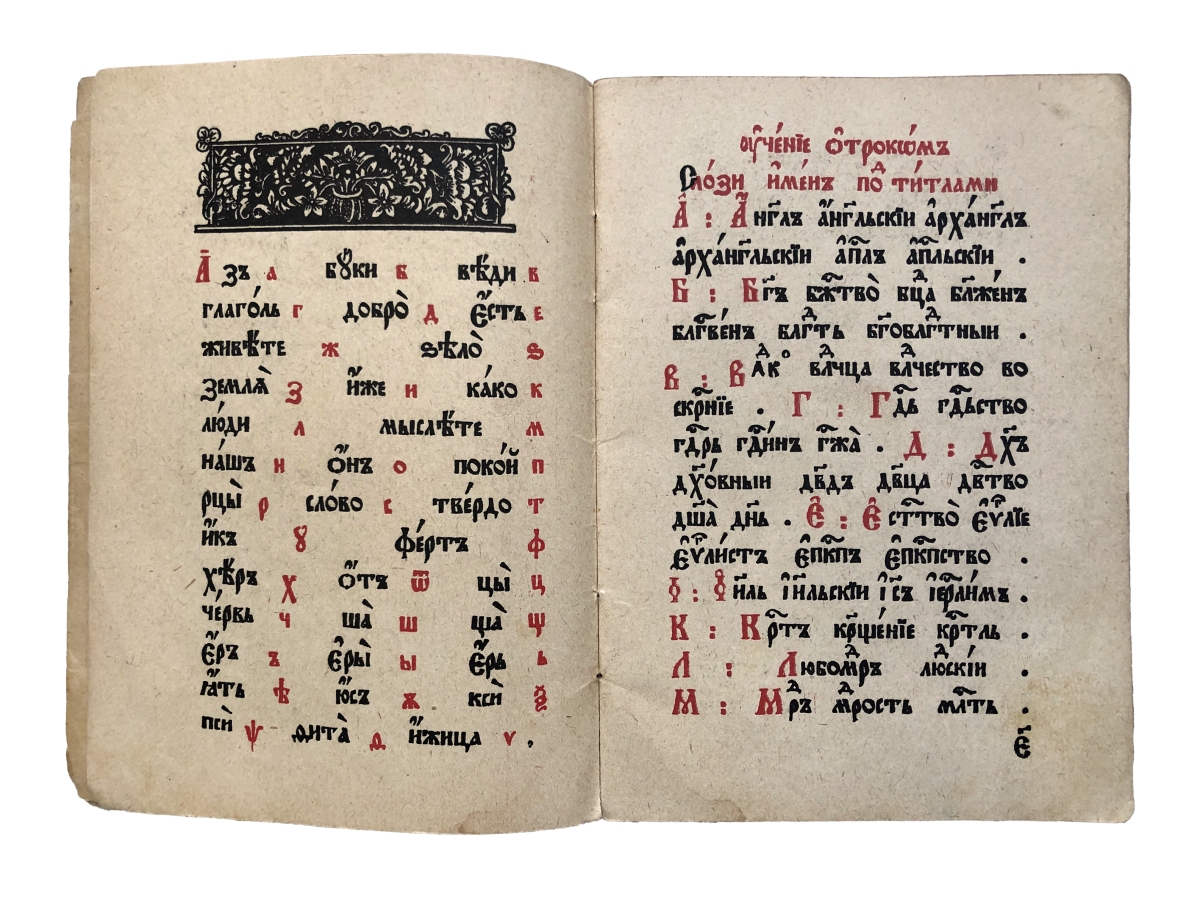 А҆́зъ а бꙋ́ки б вѣ́ди в
глаго́ль г добро̀ д є҆́сть е
живѣ́те ж ѕѣло̀ ѕ
землѧ̀ з и҆́же и ка́ко к
лю́ди л мыслѣ́те м
на́шъ н ѻ҆́нъ о поко́й п
рцы̀ р сло́во с тве́рдо т
и҆́къ ꙋ фе́ртъ ф
хѣ́ръ х ѻ҆́тъ ѿ цы̀ ц
че́рвь ч ша̀ ш ща̀ щ
є҆́ръ ъ є҆ры̀ ы є҆́рь ь
ꙗ҆́ть ѣ ю҆́съ ѫ ксѝ ѯ
псѝ ѱ ѳита̀ ѳ и҆́жица ѵ ,
ᲂу҆че́нїе ѻ҆трокѡ́мъ
Сло́зи и҆ме́нъ поⷣ ти́тлами
А҆ : А҆́нг҃лъ а҆́нг҃льскїи а҆рха́нг҃лъ
а҆рха́нг҃льскїи а҆пⷭ҇лъ а҆пⷭ҇льскїи .
Б : Бг҃ъ бж҃тво̀ бцⷣа бл҃же́нъ
бл҃гве́нъ блгⷣть бг҃облгⷣтныи .
В : Влⷣкⷪ҇ влⷣчца влⷣчество во
скрⷭ҇нїе . Г : Гдⷭ҇ь гдⷭ҇ьство
гдⷭ҇рь гдⷭ҇инъ гж҃а̀ . Д : Дх҃ъ
дх҃о́вныи дв҃дъ дв҃ца дв҃тво
дш҃а̀ дн҃ь . Є҆ : Є҆стⷭ҇тво̀ є҆ѵⷢ҇лїе
є҆ѵⷢ҇ли́стъ є҆пⷭ҇кпъ є҆пⷭ҇кпство .
І҆ : І҆и҃ль і҆и҃льскїи і҆с҃ъ і҆ерⷭ҇ли́мъ .
К : Крⷭ҇тъ кр҃ще́нїе крⷭ҇тль .
Л : Любомⷣръ люⷣскїи .
М : Мⷣръ мⷣрость мл҃ть .
є҃